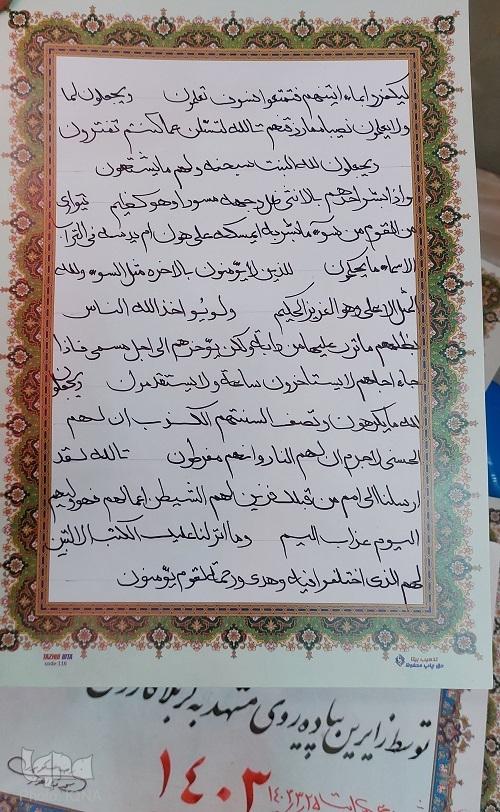 ليكفروا بماء اتينهم فتمتعوا فسوف تعلمون ويجعلون لما
ولا يعلمون نصيبا مما رزقنهم تالله لتسئلن عما كنتم تفترون
ويجعلون لله البنت سبحنه ولهم ما يشتهون
واذا بشر احدهم بالانثى ظل وجهه مسودا وهو كظيم يتواى
من القوم من سوء ما بشر به ايمسكه على هون ام يدسه فى الترا
الا ساء ما يحكمون للذين لا يؤمنون بالاخره مثل السوء ولله
المثل الاعلى وهو العزيز الحكيم ولو يواخذ الله الناس
بظلمهم ما ترك عليها من دابة ولكن يؤخرهم الى اجل مسمى فاذا
جاء اجلهم لا يستاخرون ساعة ولا يستقدمون ويجعلون
لله ما يكرهون وتصف السنتهم الكذب ان لهم
الحسنى لا جرم ان لهم النار وانهم مفرطون تالله لقد
ارسلنا الى امم من قبلك فزين لهم الشيطن اعمالهم فهو وليهم
اليوم عذاب اليم وما انزلنا عليك الكتب الا لتبين
لهم الذى اختلفوا فيه وهدى ورحمة لقوم يؤمنون
TAZHIB BITA
code:116
تذهیب بیتا
حق چاپ محفوظ
توسط زایرین پیاده روی مشهد به کربلا
۱۴۰۳
۱۴۰۲,۳,۲۵